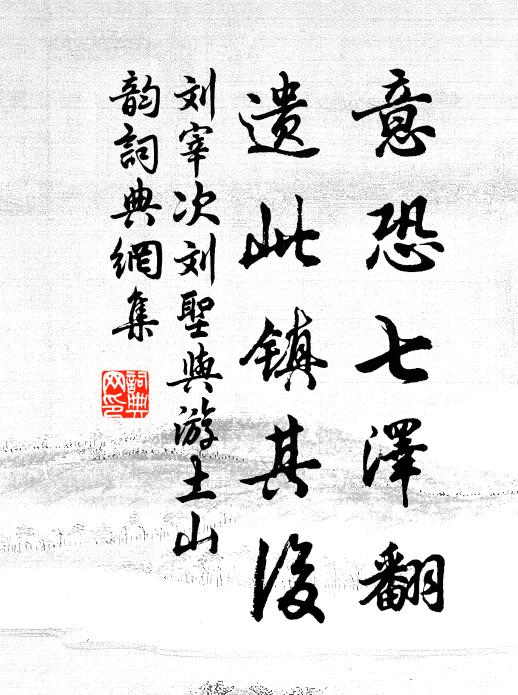 意恐七澤翻
遗此镇其後
刘宰次刘聖與游土山
韵詞典網集
詞典
网印